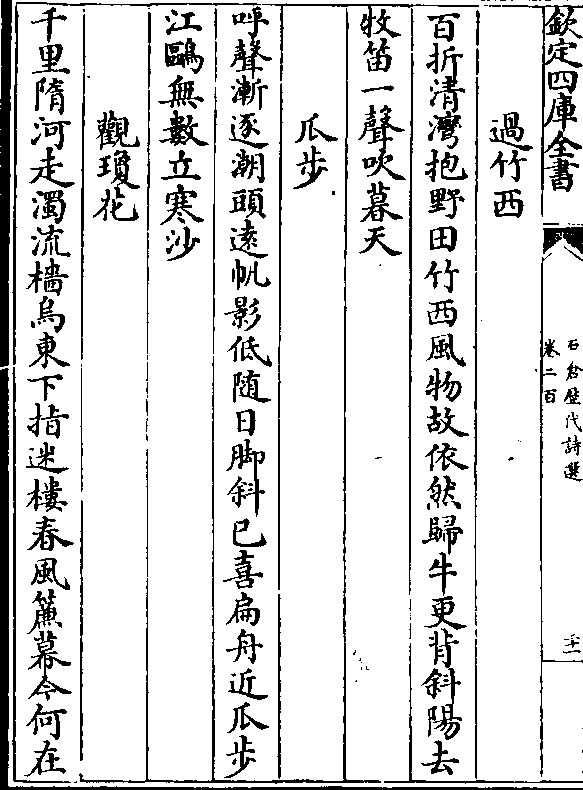 欽定四庫全書
石倉歴代詩選
卷二百
二十一
過竹西
百折清灣抱野田竹西風物故依然歸牛更背斜陽去
牧笛一聲吹暮天
瓜步
呼聲漸逐潮頭遠帆影低隨日脚斜已喜扁舟近瓜步
江鷗無數立寒沙
觀瓊花
千里隋河走濁流檣烏東下指迷樓春風簾幕今何在